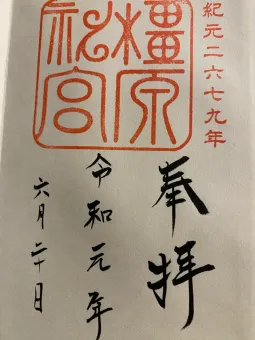 紀元二六七九年
奉拝
橿原
神宮
令和元年
六月二十日